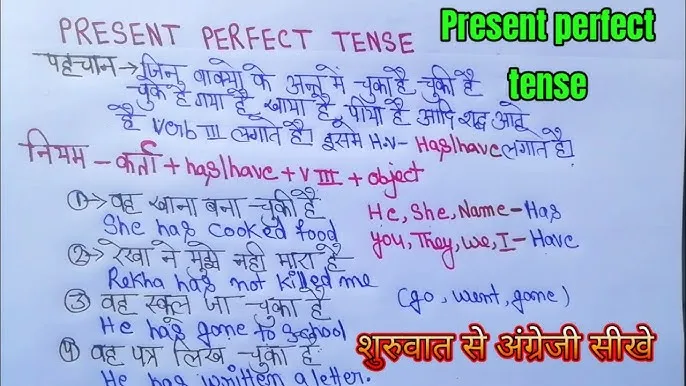 PRESENT PERFECT TENSE
Present perfect tense
पहचान → जिन वाक्यो के अन्त में चुका है, चुकी है
चुके है गया है, खाया है, पीया है आदि शब्द आते
है Verb III लगाते है। इसमे H.V- Has/have लगाते है।
नियम - कर्ता + has/have + V III + object
①→ वह खाना बना चुकी है
She has cooked food
He, She, Name - Has
you, They, we, I - Have
②→ रेखा ने मुझे नही मारा है
Rekha has not killed me
③ वह स्कूल जा चुका है
(go, went, gone)
He has gone to school
④ वह पत्र लिख चुका है
He has written a letter.
शुरुवात से अंग्रेजी सीखे